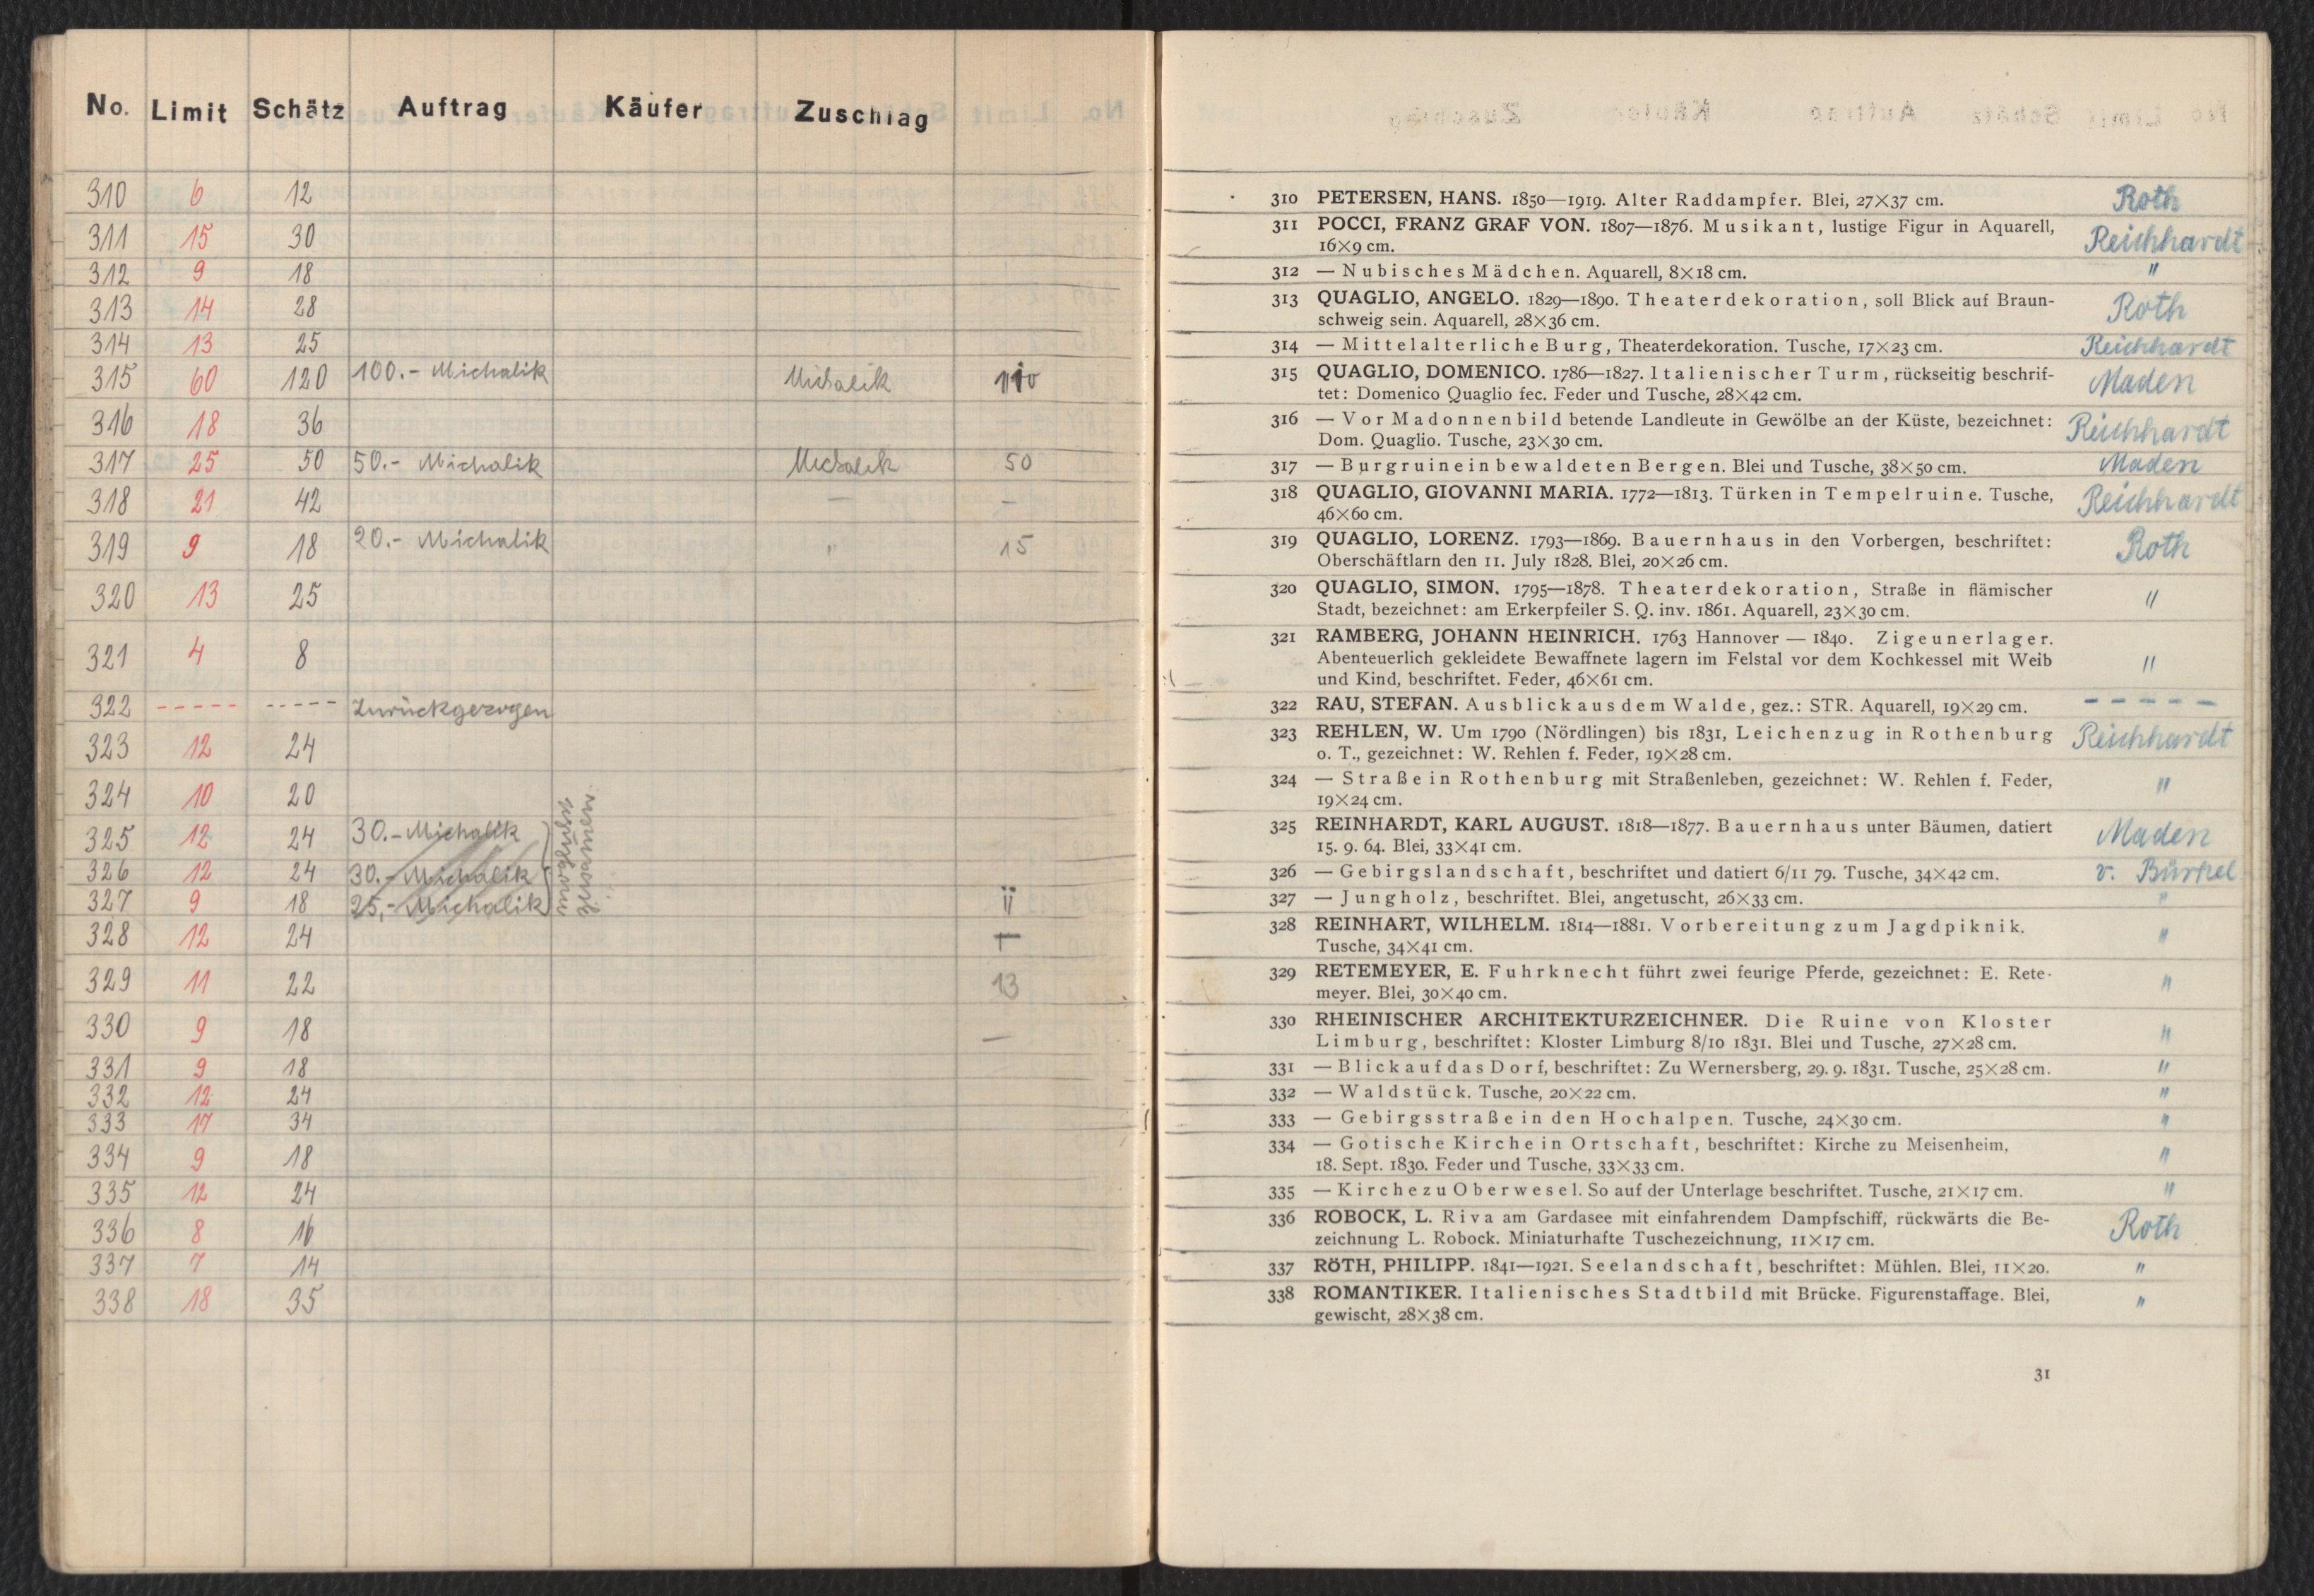 No. Limit Schätz Auftrag Käufer Zuschlag
310 6 12
311 15 30
312 9 18
313 14 28
314 13 25
315 60 120 100.- Michalik Michalik 110
316 18 36
317 25 50 50.- Michalik Michalik 50
318 21 42 — —
319 9 18 20.- Michalik " 15
320 13 25
321 4 8
322 ----- ----- Zurückgezogen
323 12 24
324 10 20
325 12 24 30.- Michalik
326 12 24 30.- Michalik
327 9 18 25,- Michalik
womöglich
zusammen.
328 12 24
329 11 22 13
330 9 18 —
331 9 18
332 12 24
333 17 34
334 9 18
335 12 24
336 8 16
337 7 14
338 18 35
310 PETERSEN, HANS. 1850—1919. Alter Raddampfer. Blei, 27×37 cm. Roth
311 POCCI, FRANZ GRAF VON. 1807—1876. Musikant, lustige Figur in Aquarell, Reichhardt
16×9 cm.
312 — Nubisches Mädchen. Aquarell, 8×18 cm. "
313 QUAGLIO, ANGELO. 1829—1890. Theaterdekoration, soll Blick auf Braun- Roth
schweig sein. Aquarell, 28×36 cm.
314 — Mittelalterliche Burg, Theaterdekoration. Tusche, 17×23 cm. Reichhardt
315 QUAGLIO, DOMENICO. 1786—1827. Italienischer Turm, rückseitig beschrif- Maden
tet: Domenico Quaglio fec. Feder und Tusche, 28×42 cm.
316 — Vor Madonnenbild betende Landleute in Gewölbe an der Küste, bezeichnet: Reichhardt
Dom. Quaglio. Tusche, 23×30 cm.
317 — Burgruine in bewaldeten Bergen. Blei und Tusche, 38×50 cm. Maden
318 QUAGLIO, GIOVANNI MARIA. 1772—1813. Türken in Tempelruine. Tusche, Reichhardt
46×60 cm.
319 QUAGLIO, LORENZ. 1793—1869. Bauernhaus in den Vorbergen, beschriftet: Roth
Oberschäftlarn den 11. July 1828. Blei, 20×26 cm.
320 QUAGLIO, SIMON. 1795—1878. Theaterdekoration, Straße in flämischer "
Stadt, bezeichnet: am Erkerpfeiler S. Q. inv. 1861. Aquarell, 23×30 cm.
321 RAMBERG, JOHANN HEINRICH. 1763 Hannover — 1840. Zigeunerlager.
Abenteuerlich gekleidete Bewaffnete lagern im Felstal vor dem Kochkessel mit Weib "
und Kind, beschriftet. Feder, 46×61 cm.
322 RAU, STEFAN. Ausblick aus dem Walde, gez.: STR. Aquarell, 19×29 cm. -----
323 REHLEN, W. Um 1790 (Nördlingen) bis 1831, Leichenzug in Rothenburg Reichhardt
o. T., gezeichnet: W. Rehlen f. Feder, 19×28 cm.
324 — Straße in Rothenburg mit Straßenleben, gezeichnet: W. Rehlen f. Feder, "
19×24 cm.
325 REINHARDT, KARL AUGUST. 1818—1877. Bauernhaus unter Bäumen, datiert Maden
15. 9. 64. Blei, 33×41 cm.
326 — Gebirgslandschaft, beschriftet und datiert 6/11 79. Tusche, 34×42 cm. v. Bürkel
327 — Jungholz, beschriftet. Blei, angetuscht, 26×33 cm. "
328 REINHART, WILHELM. 1814—1881. Vorbereitung zum Jagdpiknik. "
Tusche, 34×41 cm.
329 RETEMEYER, E. Fuhrknecht führt zwei feurige Pferde, gezeichnet: E. Rete- "
meyer. Blei, 30×40 cm.
330 RHEINISCHER ARCHITEKTURZEICHNER. Die Ruine von Kloster "
Limburg, beschriftet: Kloster Limburg 8/10 1831. Blei und Tusche, 27×28 cm.
331 — Blick auf das Dorf, beschriftet: Zu Wernersberg, 29. 9. 1831. Tusche, 25×28 cm. "
332 — Waldstück. Tusche, 20×22 cm. "
333 — Gebirgsstraße in den Hochalpen. Tusche, 24×30 cm. "
334 — Gotische Kirche in Ortschaft, beschriftet: Kirche zu Meisenheim, "
18. Sept. 1830. Feder und Tusche, 33×33 cm.
335 — Kirche zu Oberwesel. So auf der Unterlage beschriftet. Tusche, 21×17 cm. "
336 ROBOCK, L. Riva am Gardasee mit einfahrendem Dampfschiff, rückwärts die Be- Roth
zeichnung L. Robock. Miniaturhafte Tuschezeichnung, 11×17 cm.
337 RÖTH, PHILIPP. 1841—1921. Seelandschaft, beschriftet: Mühlen. Blei, 11×20. "
338 ROMANTIKER. Italienisches Stadtbild mit Brücke. Figurenstaffage. Blei, "
gewischt, 28×38 cm.
31